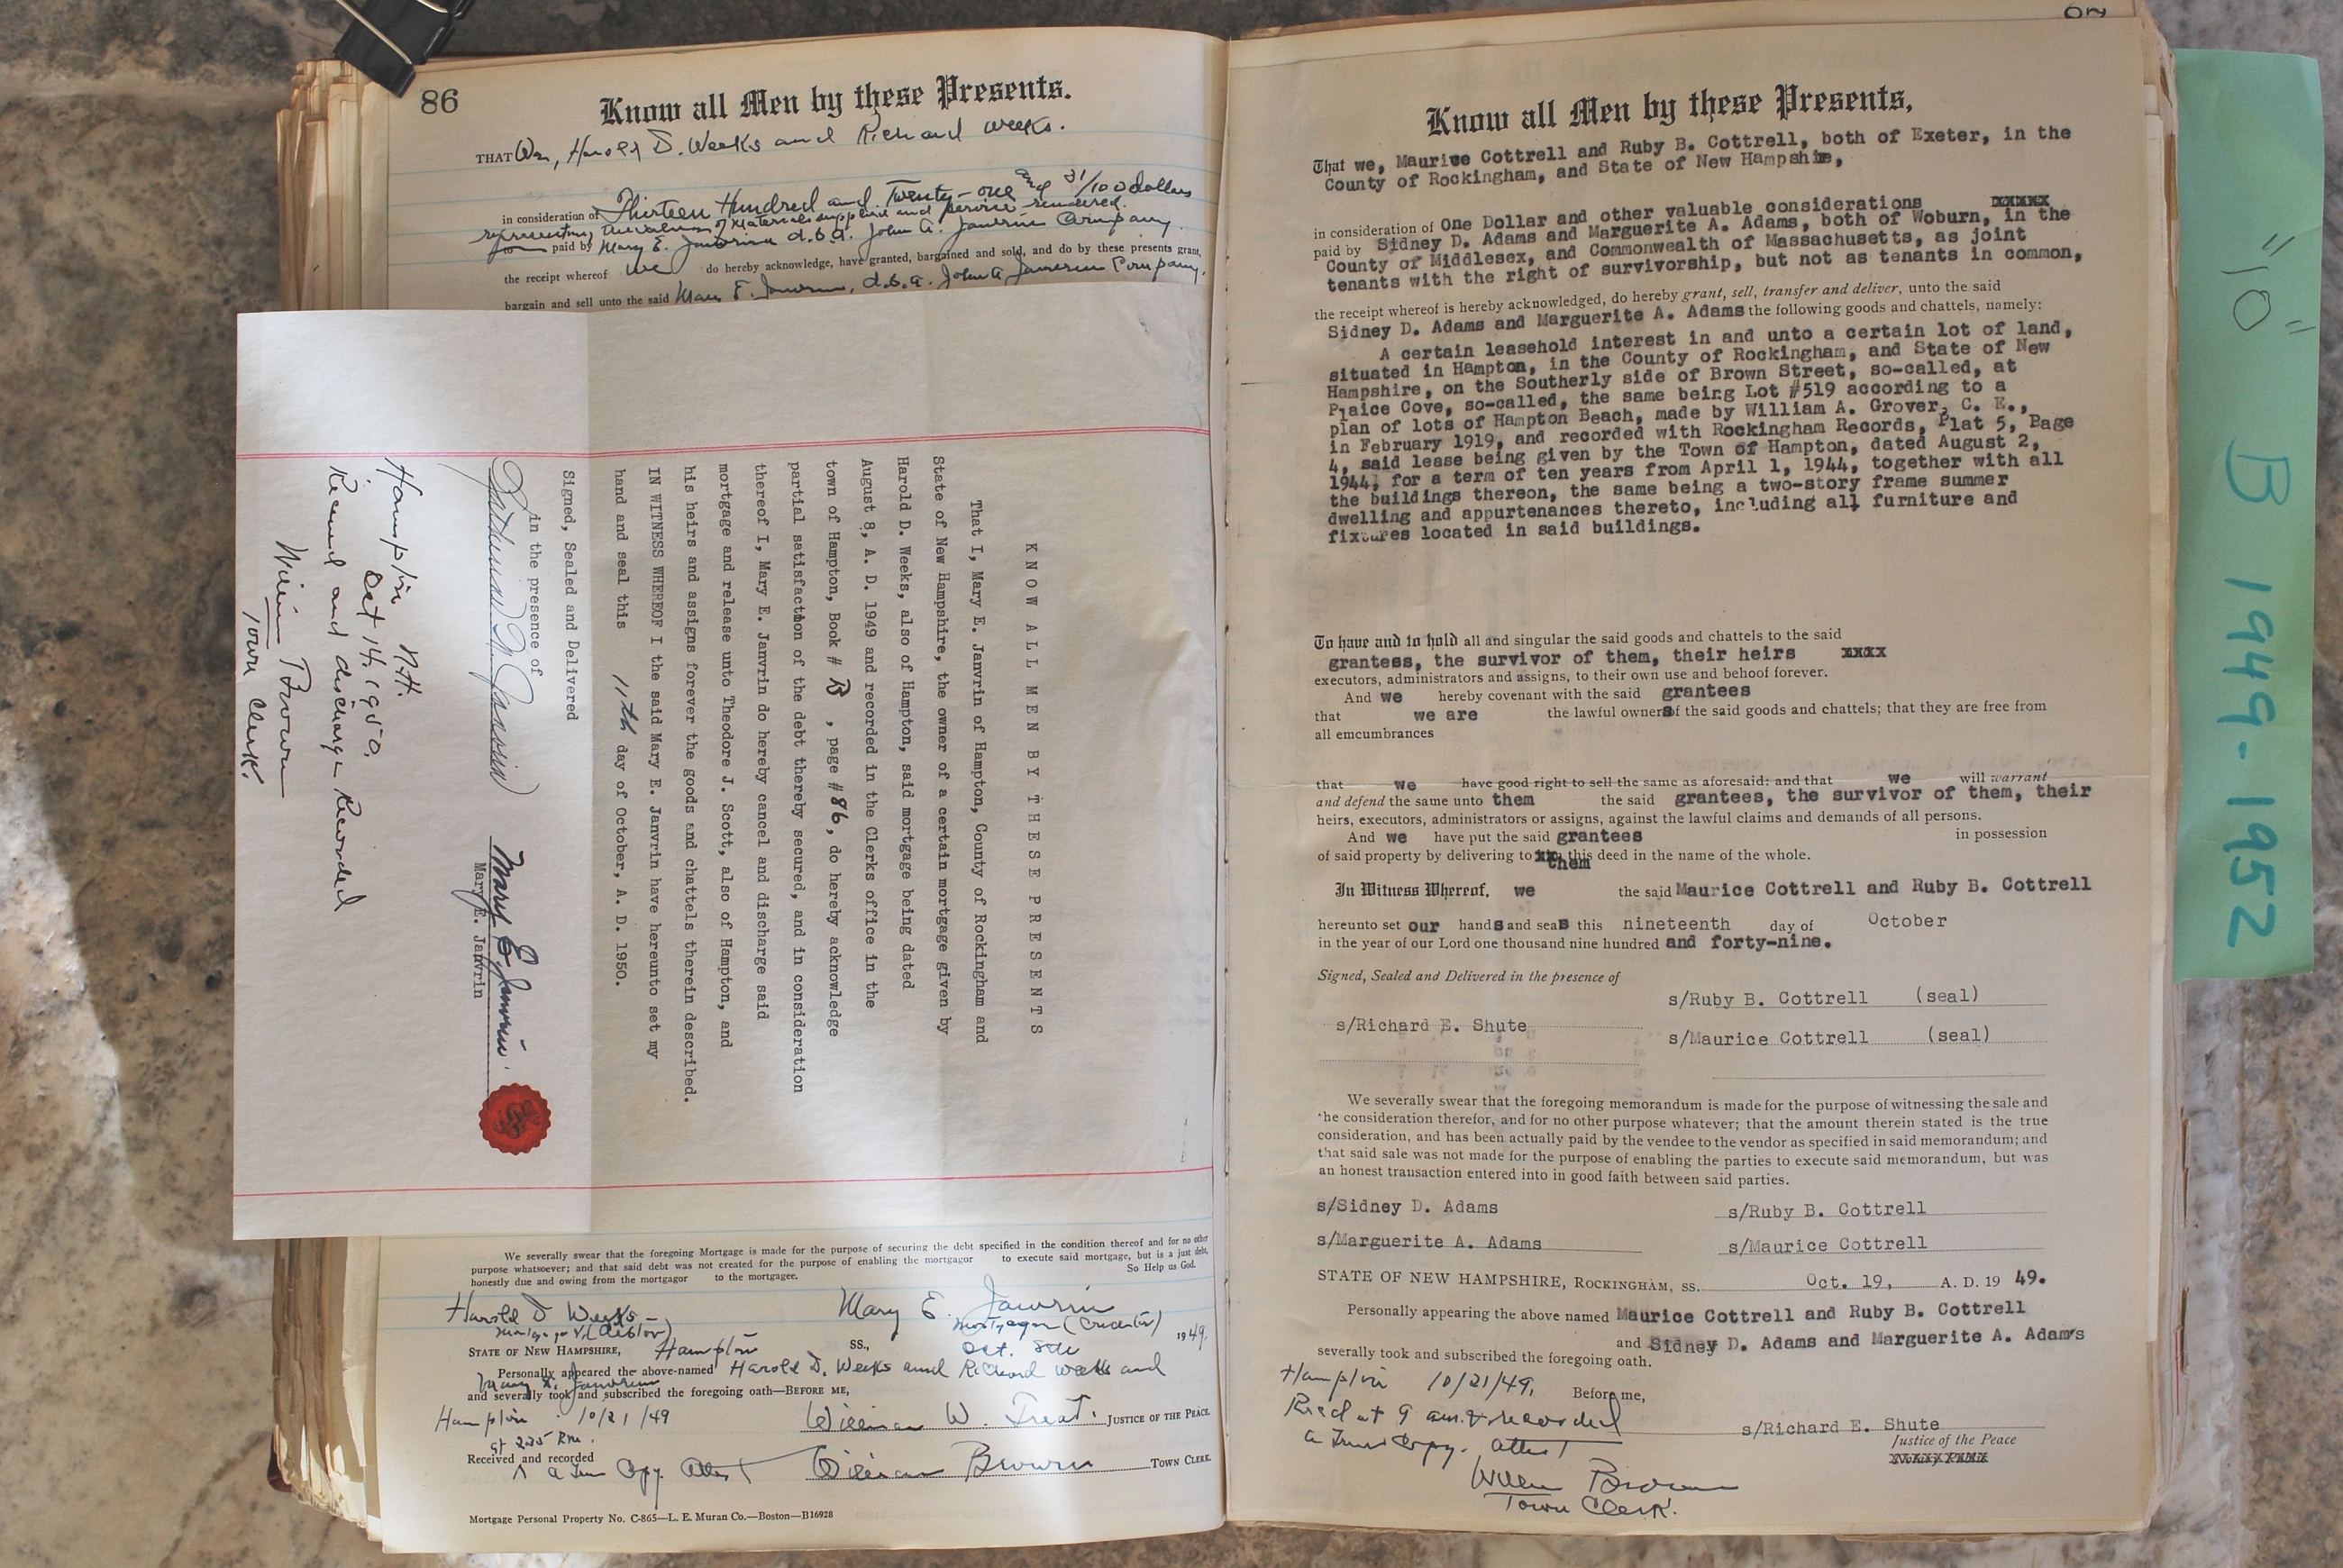 86
Know all Men by these Presents.
THAT We, Harold D. Weeks and Richard Weeks.
in consideration of Thirteen Hundred and Twenty-one and 31/100 dollars
representing the values of materials supplied and service rendered.
paid by Mary E. Janvrin d.b.a. John A. Janvrin Company.
the receipt whereof we do hereby acknowledge, have granted, bargained and sold, and do by these presents grant,
bargain and sell unto the said Mary E. Janvrin, d.b.a. John A. Janvrin Company,
KNOW ALL MEN BY THESE PRESENTS
That I, Mary E. Janvrin of Hampton, County of Rockingham and
State of New Hampshire, the owner of a certain mortgage given by
Harold D. Weeks, also of Hampton, said mortgage being dated
August 8, A. D. 1949 and recorded in the Clerks office in the
town of Hampton, Book # B , page #86, do hereby acknowledge
partial satisfaction of the debt thereby secured, and in consideration
thereof I, Mary E. Janvrin do hereby cancel and discharge said
mortgage and release unto Theodore J. Scott, also of Hampton, and
his heirs and assigns forever the goods and chattels therein described.
IN WITNESS WHEREOF I the said Mary E. Janvrin have hereunto set my
hand and seal this 11th day of October, A. D. 1950.
Signed, Sealed and Delivered
in the presence of
Janvrin
Mary E. Janvrin
Mary E. Janvrin
Hampton N.H.
Oct 14. 1950.
Received and discharge Recorded
William Brown
Town Clerk.
We severally swear that the foregoing Mortgage is made for the purpose of securing the debt specified in the condition thereof and for no other
purpose whatsoever; and that said debt was not created for the purpose of enabling the mortgagor to execute said mortgage, but is a just debt,
honestly due and owing from the mortgagor to the mortgagee. So Help us God.
Harold D Weeks Mary E. Janvrin
Mortgagor (Debtor) Mortgagor (Creditor)
STATE OF NEW HAMPSHIRE, Hampton SS., Oct. 8th 1949.
Personally appeared the above-named Harold D. Weeks and Richard Weeks and
Mary E. Janvrin
and severally took and subscribed the foregoing oath—BEFORE ME,
Hampton 10/21/49 William W. Treat. JUSTICE OF THE PEACE.
at 2.25 P.m.
Received and recorded
a True Copy Attest William Brown TOWN CLERK.
Mortgage Personal Property No. C-865—L. E. Muran Co.—Boston—B16928
Know all Men by these Presents,
That we, Maurice Cottrell and Ruby B. Cottrell, both of Exeter, in the
County of Rockingham, and State of New Hampshire,
in consideration of One Dollar and other valuable considerations xxxxx
paid by Sidney D. Adams and Marguerite A. Adams, both of Woburn, in the
County of Middlesex, and Commonwealth of Massachusetts, as joint
tenants with the right of survivorship, but not as tenants in common,
the receipt whereof is hereby acknowledged, do hereby grant, sell, transfer and deliver, unto the said
Sidney D. Adams and Marguerite A. Adams the following goods and chattels, namely:
A certain leasehold interest in and unto a certain lot of land,
situated in Hampton, in the County of Rockingham, and State of New
Hampshire, on the Southerly side of Brown Street, so-called, at
Plaice Cove, so-called, the same being Lot #519 according to a
plan of lots of Hampton Beach, made by William A. Grover, C. E.,
in February 1919, and recorded with Rockingham Records, Plat 5, Page
4, said lease being given by the Town of Hampton, dated August 2,
1944, for a term of ten years from April 1, 1944, together with all
the buildings thereon, the same being a two-story frame summer
dwelling and appurtenances thereto, including all furniture and
fixtures located in said buildings.
To have and to hold all and singular the said goods and chattels to the said
grantess, the survivor of them, their heirs xxxx
executors, administrators and assigns, to their own use and behoof forever.
And we hereby covenant with the said grantees
that we are the lawful owners of the said goods and chattels; that they are free from
all emcumbrances
that we have good right to sell the same as aforesaid: and that we will warrant
and defend the same unto them the said grantees, the survivor of them, their
heirs, executors, administrators or assigns, against the lawful claims and demands of all persons.
And we have put the said grantees in possession
of said property by delivering to xxx this deed in the name of the whole.
them
In Witness Whereof, we the said Maurice Cottrell and Ruby B. Cottrell
hereunto set our hands and seals this nineteenth day of October
in the year of our Lord one thousand nine hundred and forty-nine.
Signed, Sealed and Delivered in the presence of
s/Ruby B. Cottrell (seal)
s/Richard E. Shute
s/Maurice Cottrell (seal)
We severally swear that the foregoing memorandum is made for the purpose of witnessing the sale and
the consideration therefor, and for no other purpose whatever; that the amount therein stated is the true
consideration, and has been actually paid by the vendee to the vendor as specified in said memorandum; and
that said sale was not made for the purpose of enabling the parties to execute said memorandum, but was
an honest transaction entered into in good faith between said parties.
s/Sidney D. Adams s/Ruby B. Cottrell
s/Marguerite A. Adams s/Maurice Cottrell
STATE OF NEW HAMPSHIRE, ROCKINGHAM, SS. Oct. 19, A. D. 19 49.
Personally appearing the above named Maurice Cottrell and Ruby B. Cottrell
and Sidney D. Adams and Marguerite A. Adams
severally took and subscribed the foregoing oath.
Hampton 10/21/49, Before me,
Rec'd at 9 a.m. & recorded
a True Copy. Attest s/Richard E. Shute
Justice of the Peace
William Brown
Town Clerk.
"10" B 1949-1952